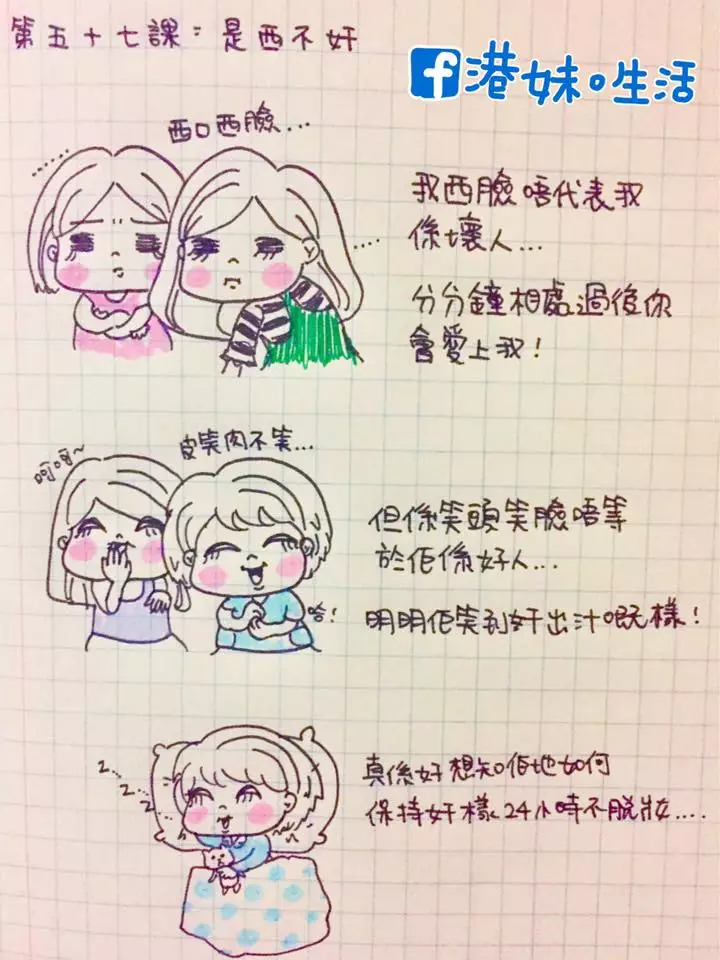 第五十七課：是西不奸
f港妹o生活
西口西臉...
我西臉唔代表我
係壞人...
分分鐘相處過後你
會愛上我！
皮笑肉不笑...
呵呵~
但係笑頭笑臉唔等
於佢係好人...
哈！
明明佢笑到奸出汁嘅樣！
z..z..z..z
真係好想知佢地如何
保持奸樣24小時不脫妝....